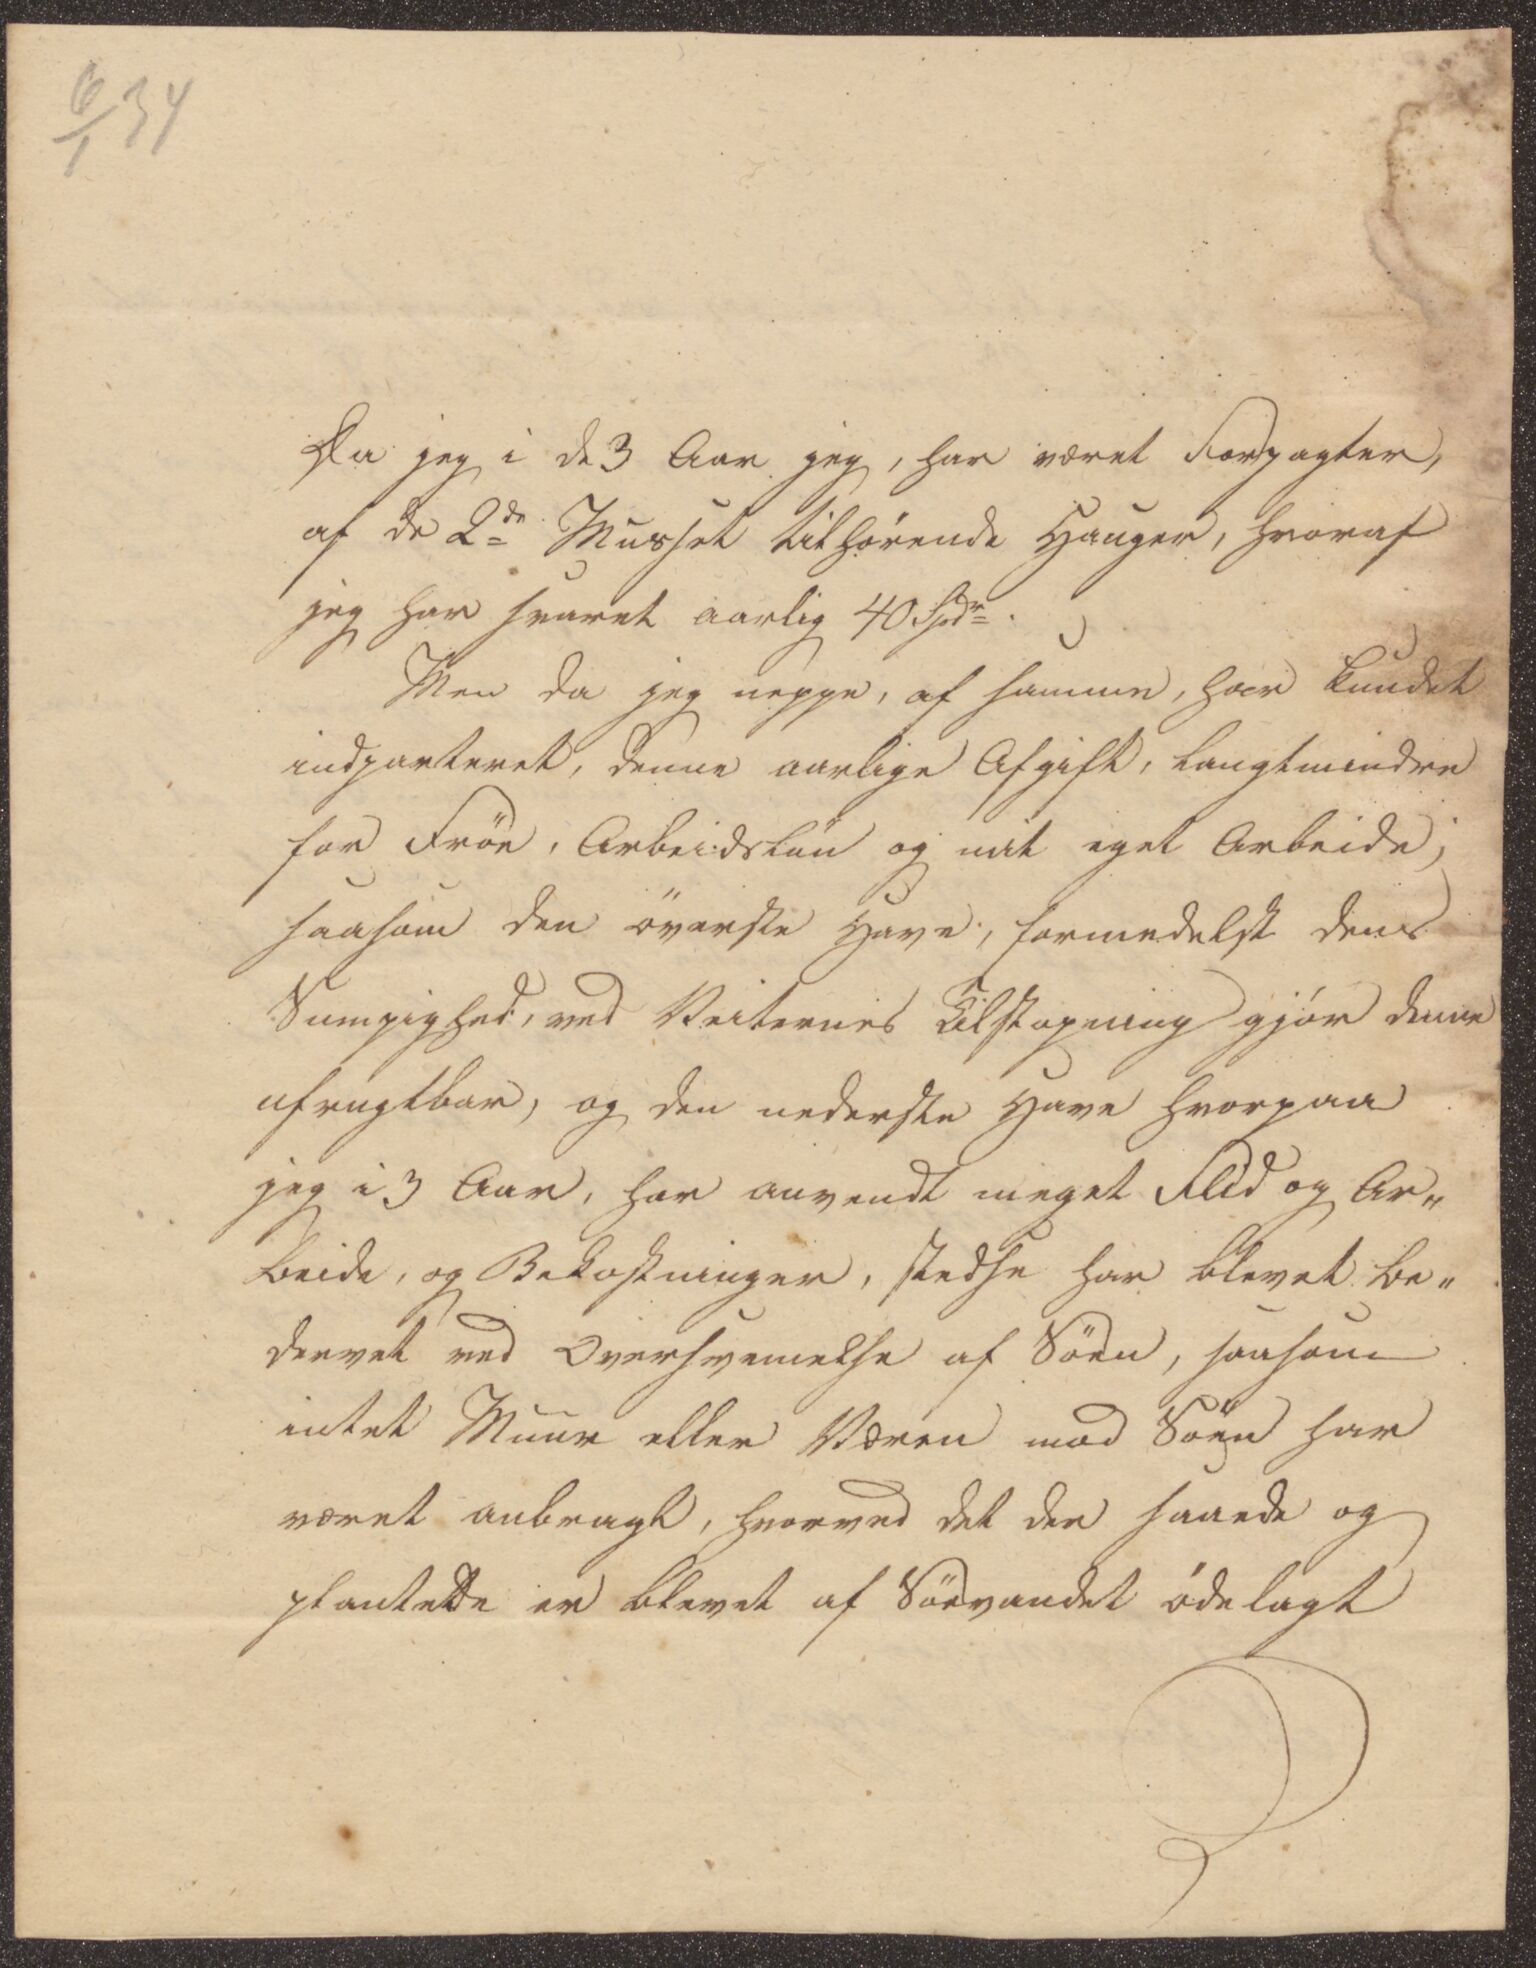 6/1 34
Da jeg i de 3 Aar jeg, har været Forpagter,
af de 2de Musæet tilhørende Hauger, hvoraf
jeg har svaret aarlig 40 Spdr.
Men da jeg neppe, af samme, har kundet
indparteret, denne aarlige Afgift, langtmindre
for Fröe, Arbeidslön og mit eget Arbeide;
saasom den överste Have, formedelst dens
Sumpighed, ved Veiternes Tilstopning gjör denne
ufrugtbar, og den nederste Have hvorpaa
jeg i 3 Aar, har anvendt meget Flid og Ar„
beide, og Bekostninger, stedse har blevet be„
dervet ved Oversvemelse af Söen, saasom
intet Muur eller Væren mod Söen har
været anbragt, hvorved det der saaede og
plantede er blevet af Söevandet ödelagt